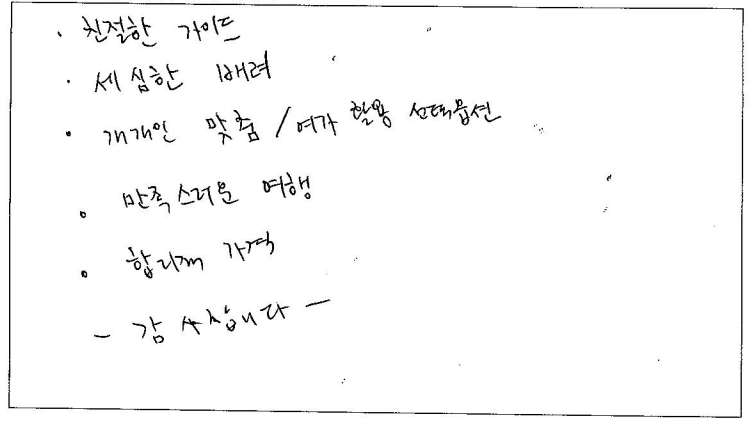 · 친절한 가이드
· 세심한 배려
· 개개인 맞춤 / 여가 활용 선택옵션
. 만족스러운 여행
. 합리적 가격
- 감사합니다 -